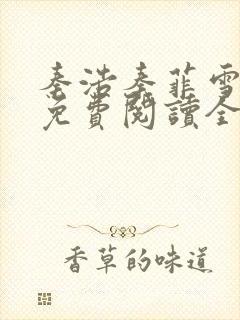 秦浩秦菲雪
免費閱讀全
香草的味道